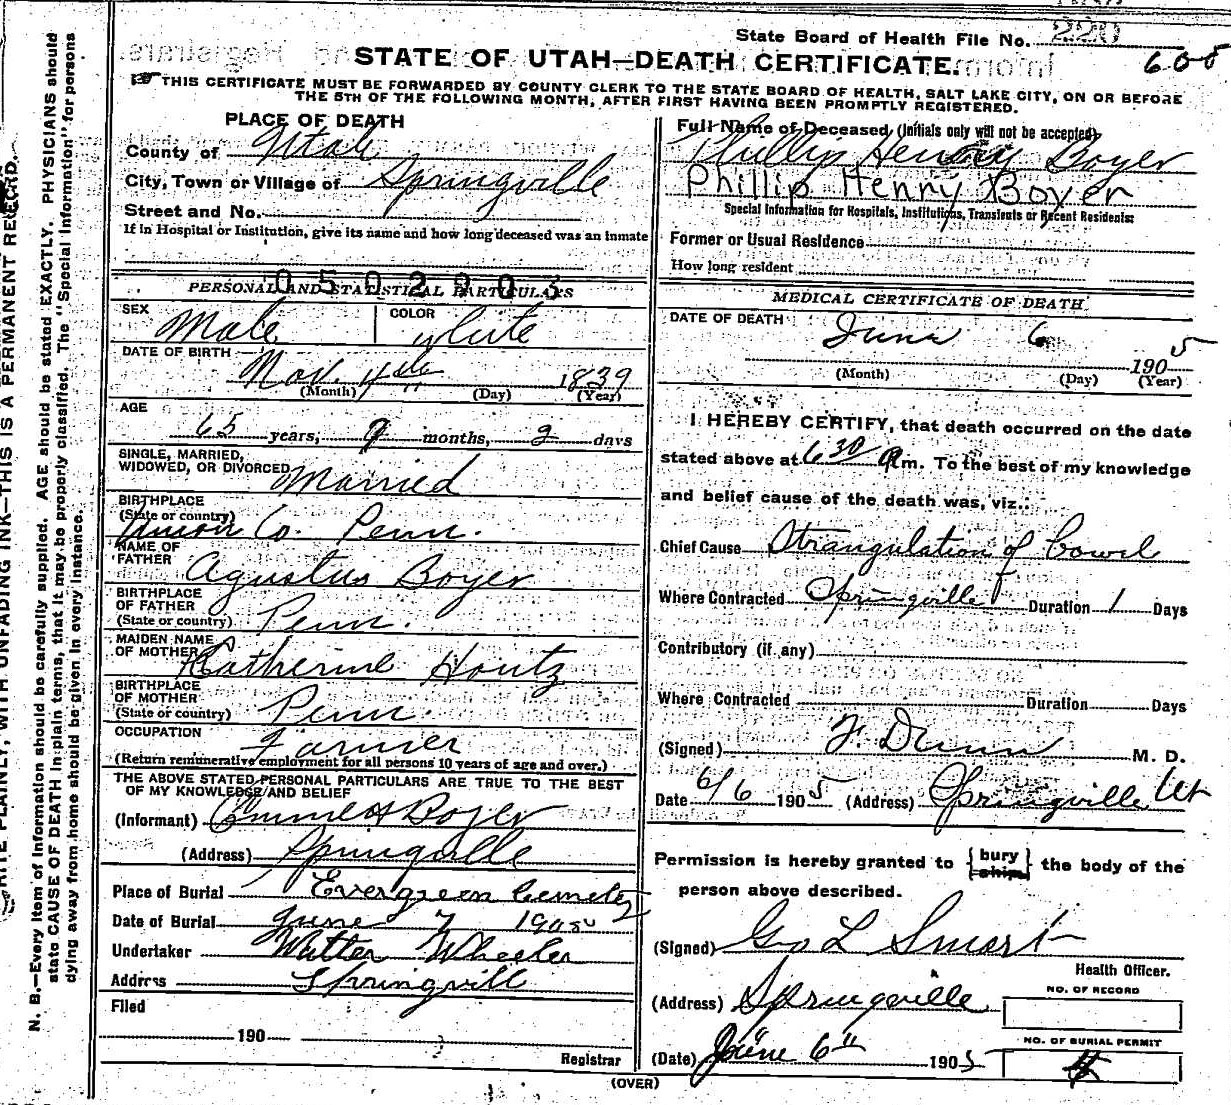 State Board of Health File No. 220
608
STATE OF UTAH—DEATH CERTIFICATE.
THIS CERTIFICATE MUST BE FORWARDED BY COUNTY CLERK TO THE STATE BOARD OF HEALTH, SALT LAKE CITY, ON OR BEFORE
THE 5TH OF THE FOLLOWING MONTH, AFTER FIRST HAVING BEEN PROMPTLY REGISTERED.
PLACE OF DEATH
County of Utah
City, Town or Village of Springville
Street and No.
If in Hospital or Institution, give its name and how long deceased was an inmate
0502903
PERSONAL AND STATISTICAL PARTICULARS
SEX Male COLOR white
DATE OF BIRTH Nov. 4th 1839
(Month) (Day) (Year)
AGE
65 years, 9 months, 2 days
SINGLE, MARRIED,
WIDOWED, OR DIVORCED Married
BIRTHPLACE
(State or country) Union Co. Penn.
NAME OF
FATHER Agustus Boyer
BIRTHPLACE
OF FATHER
(State or country) Penn.
MAIDEN NAME
OF MOTHER Catherine Houtz
BIRTHPLACE
OF MOTHER
(State or country) Penn.
OCCUPATION Farmer
(Return remunerative employment for all persons 10 years of age and over.)
THE ABOVE STATED PERSONAL PARTICULARS ARE TRUE TO THE BEST
OF MY KNOWLEDGE AND BELIEF
(Informant) Boyer
(Address) Springville
Place of Burial Evergreen Cemetey
Date of Burial June 7 1905
Undertaker Walter Wheeler
Address Springvill
Filed
190
Registrar
Full Name of Deceased (Initials only will not be accepted)
Phillip Henry Boyer
Phillip Henry Boyer
Special Information for Hospitals, Institutions, Transients or Recent Residents:
Former or Usual Residence
How long resident
MEDICAL CERTIFICATE OF DEATH
DATE OF DEATH June 6 1905
(Month) (Day) (Year)
I HEREBY CERTIFY, that death occurred on the date
stated above at 6 30 A m. To the best of my knowledge
and belief cause of the death was, viz.:
Chief Cause Strangulation of bowel
Where Contracted Springville Duration 1 Days
Contributory (if any)
Where Contracted Duration Days
(Signed) F. Dunn M. D.
Date 6/6 1905 (Address) Springville Ut
Permission is hereby granted to {bury ship} the body of the
person above described.
(Signed) Geo L Smart
Health Officer.
(Address) Springville
NO. OF RECORD
(Date) June 6" 1905
NO. OF BURIAL PERMIT
(OVER)
WRITE PLAINLY, WITH UNFADING INK—THIS IS A PERMANENT RECORD.
N. B.—Every item of information should be carefully supplied. AGE should be stated EXACTLY. PHYSICIANS should
state CAUSE OF DEATH in plain terms, that it may be properly classified. The "Special Information" for persons
dying away from home should be given in every instance.